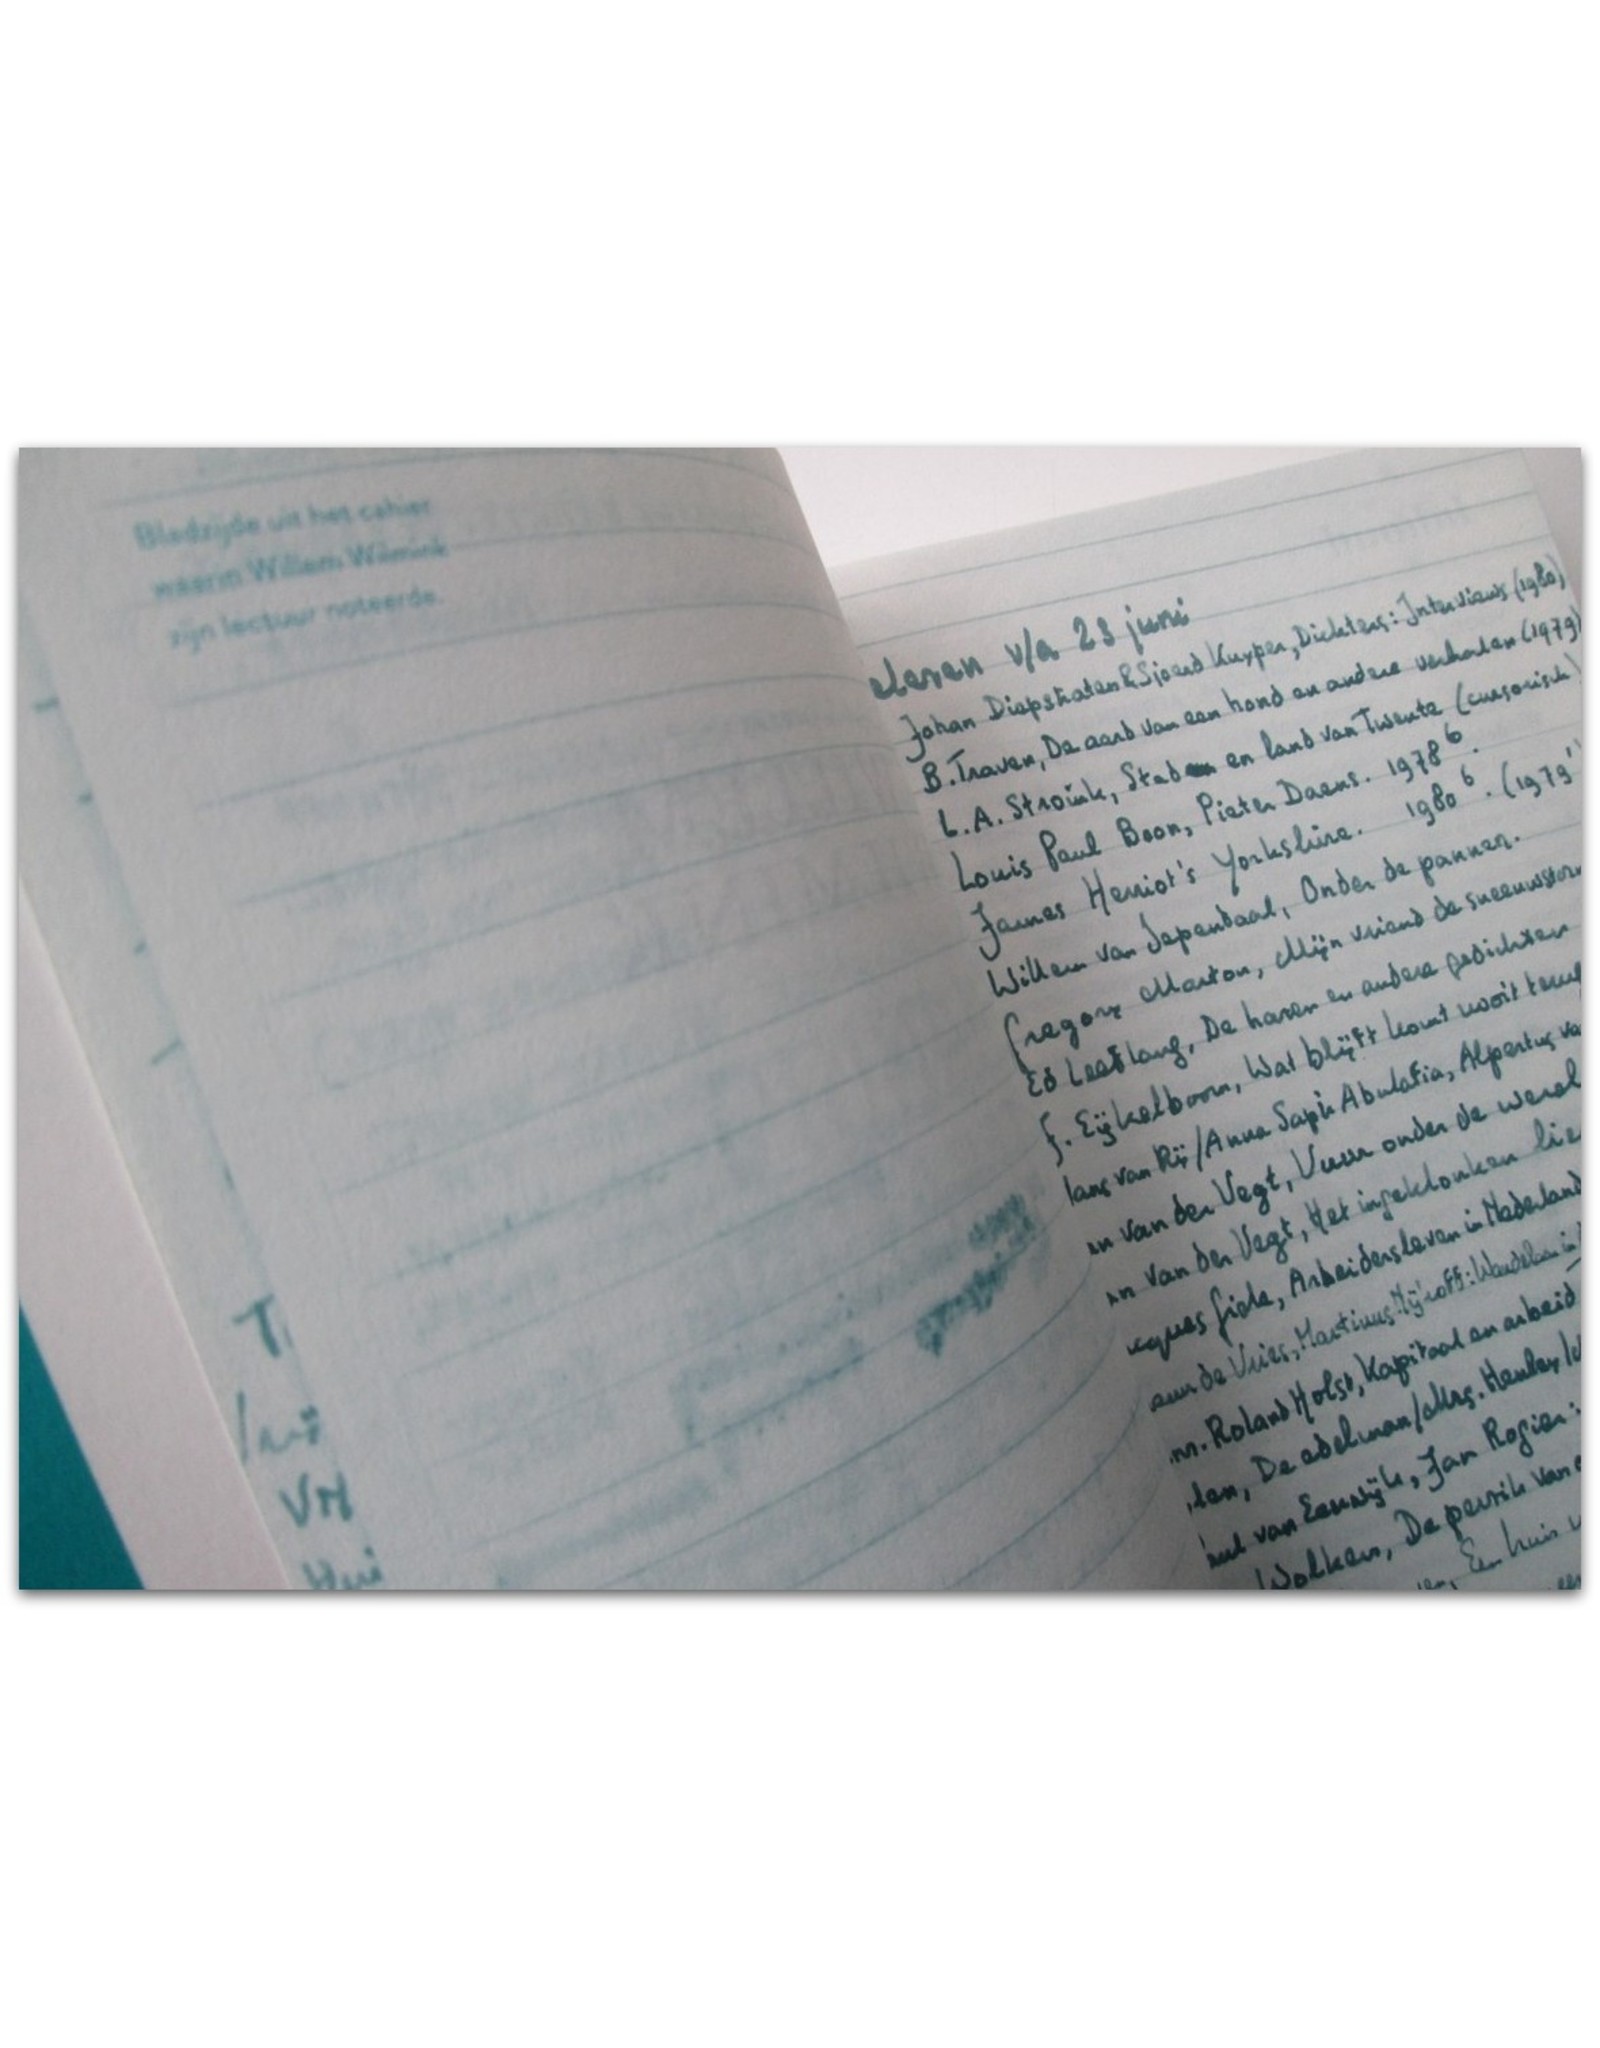 Bladzijde uit het cahier
waarin Willem Wilmink
zijn lectuur noteerde.
elezen v/a 23 juni
Johan Diepstraten & Sjoerd Kuyper, Dichters: Interviews (1980)
B. Traven, De aard van een hond en andere verhalen (1979)
L.A. Stroink, Stad en land van Twente (cursorisch)
Louis Paul Boon, Pieter Daens. 1978⁶.
James Herriot's Yorkshire. 1980⁶. (1979¹
Willem van Iependaal, Onder de pannen.
Gregory Marton, Mijn vriend de sneeuwstorm
Ed Leeflang, De hazen en andere gedichten
J. Eijkelboom, Wat blijft komt nooit terug
Hans van Rij / Anna Sapir Abulafia, Alpertus va
an van der Vegt, Vuur onder de werel
an van der Vegt, Het ingeklonken lie
cques Giele, Arbeidersleven in Nederland
de Vries, Martinus Nijhoff: Wandelaar in
m. Roland Holst, Kapitaal en arbeid
len, De edelman / Mrs. Henley /
ul van Eeuwijk, Jan Rogier:
Wolkers, De perzik van
Een huis
T
VM